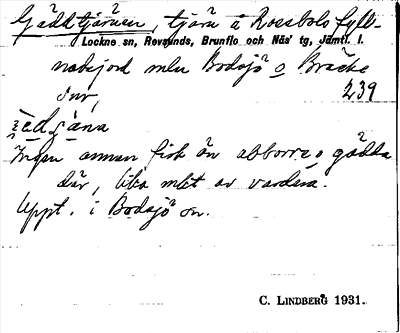 Gäddtjärnen, tjärn å Rossbols fyll-
Lockne sn, Revsunds, Brunflo och Näs' tg, Jämtl. l.
nadsjord mln Bodsjö o Bräcke
snr, 239
Ingen annan fisk än abborre o gädda
där, lika mkt av vardera.
Uppt. i Bodsjö sn.
C. LINDBERG 1931.